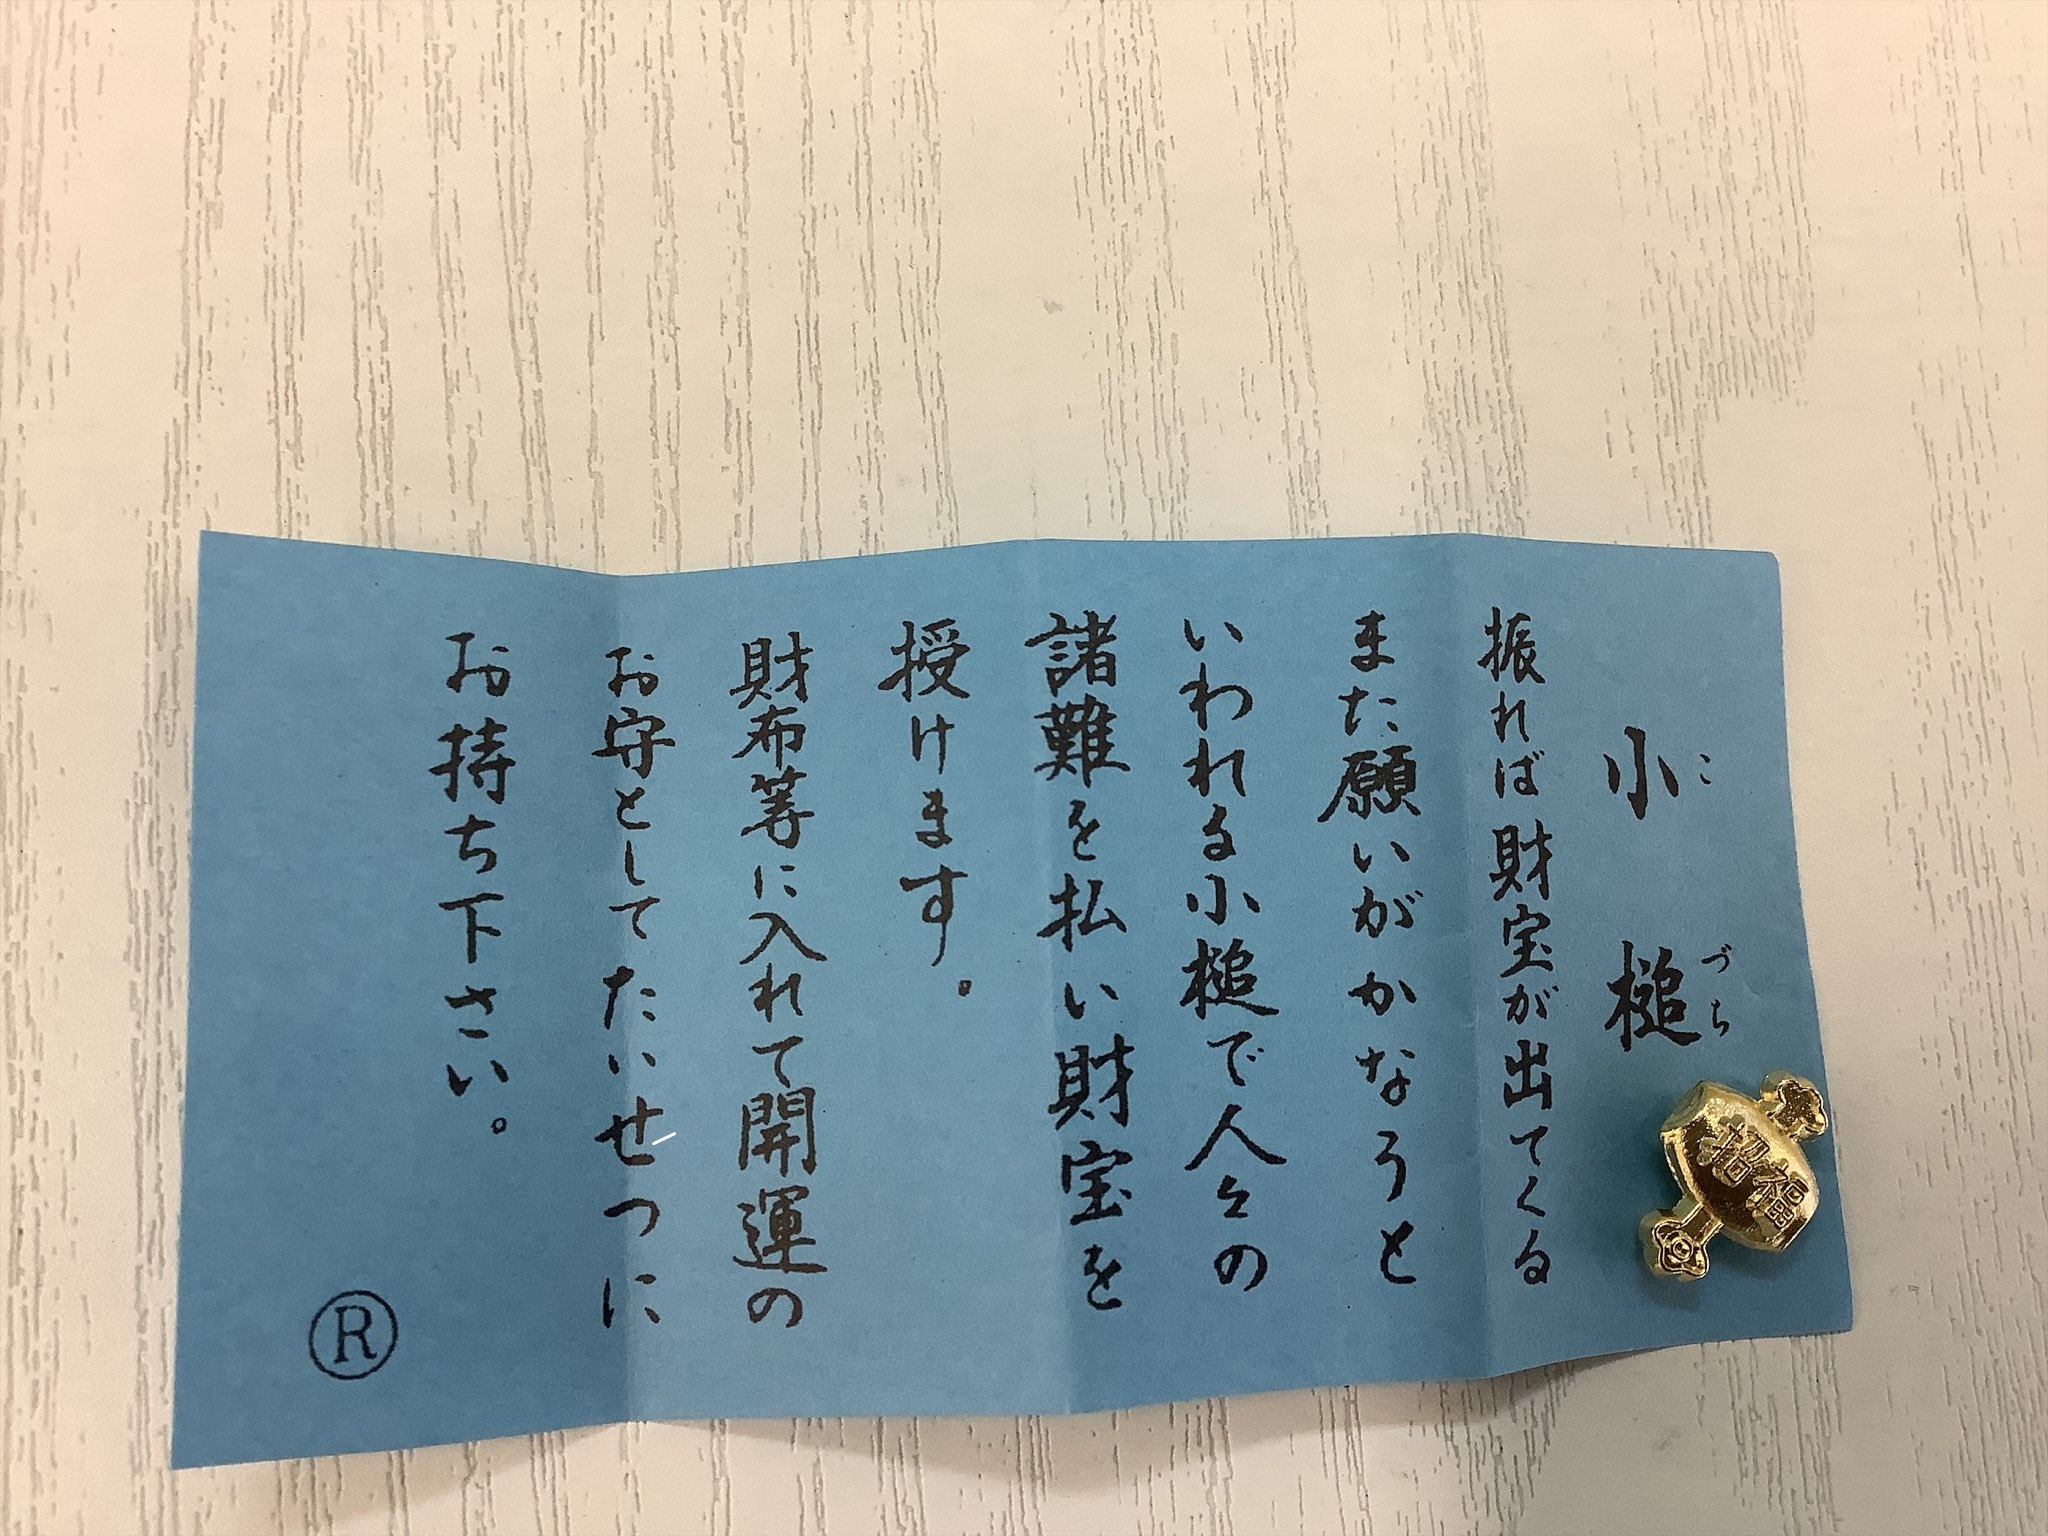 小槌
こづち
振れば財宝が出てくる
また願いがかなうと
いわれる小槌で人々の
諸難を払い財宝を
授けます。
財布等に入れて開運の
お守としてたいせつに
お持ち下さい。
Ⓡ
招福